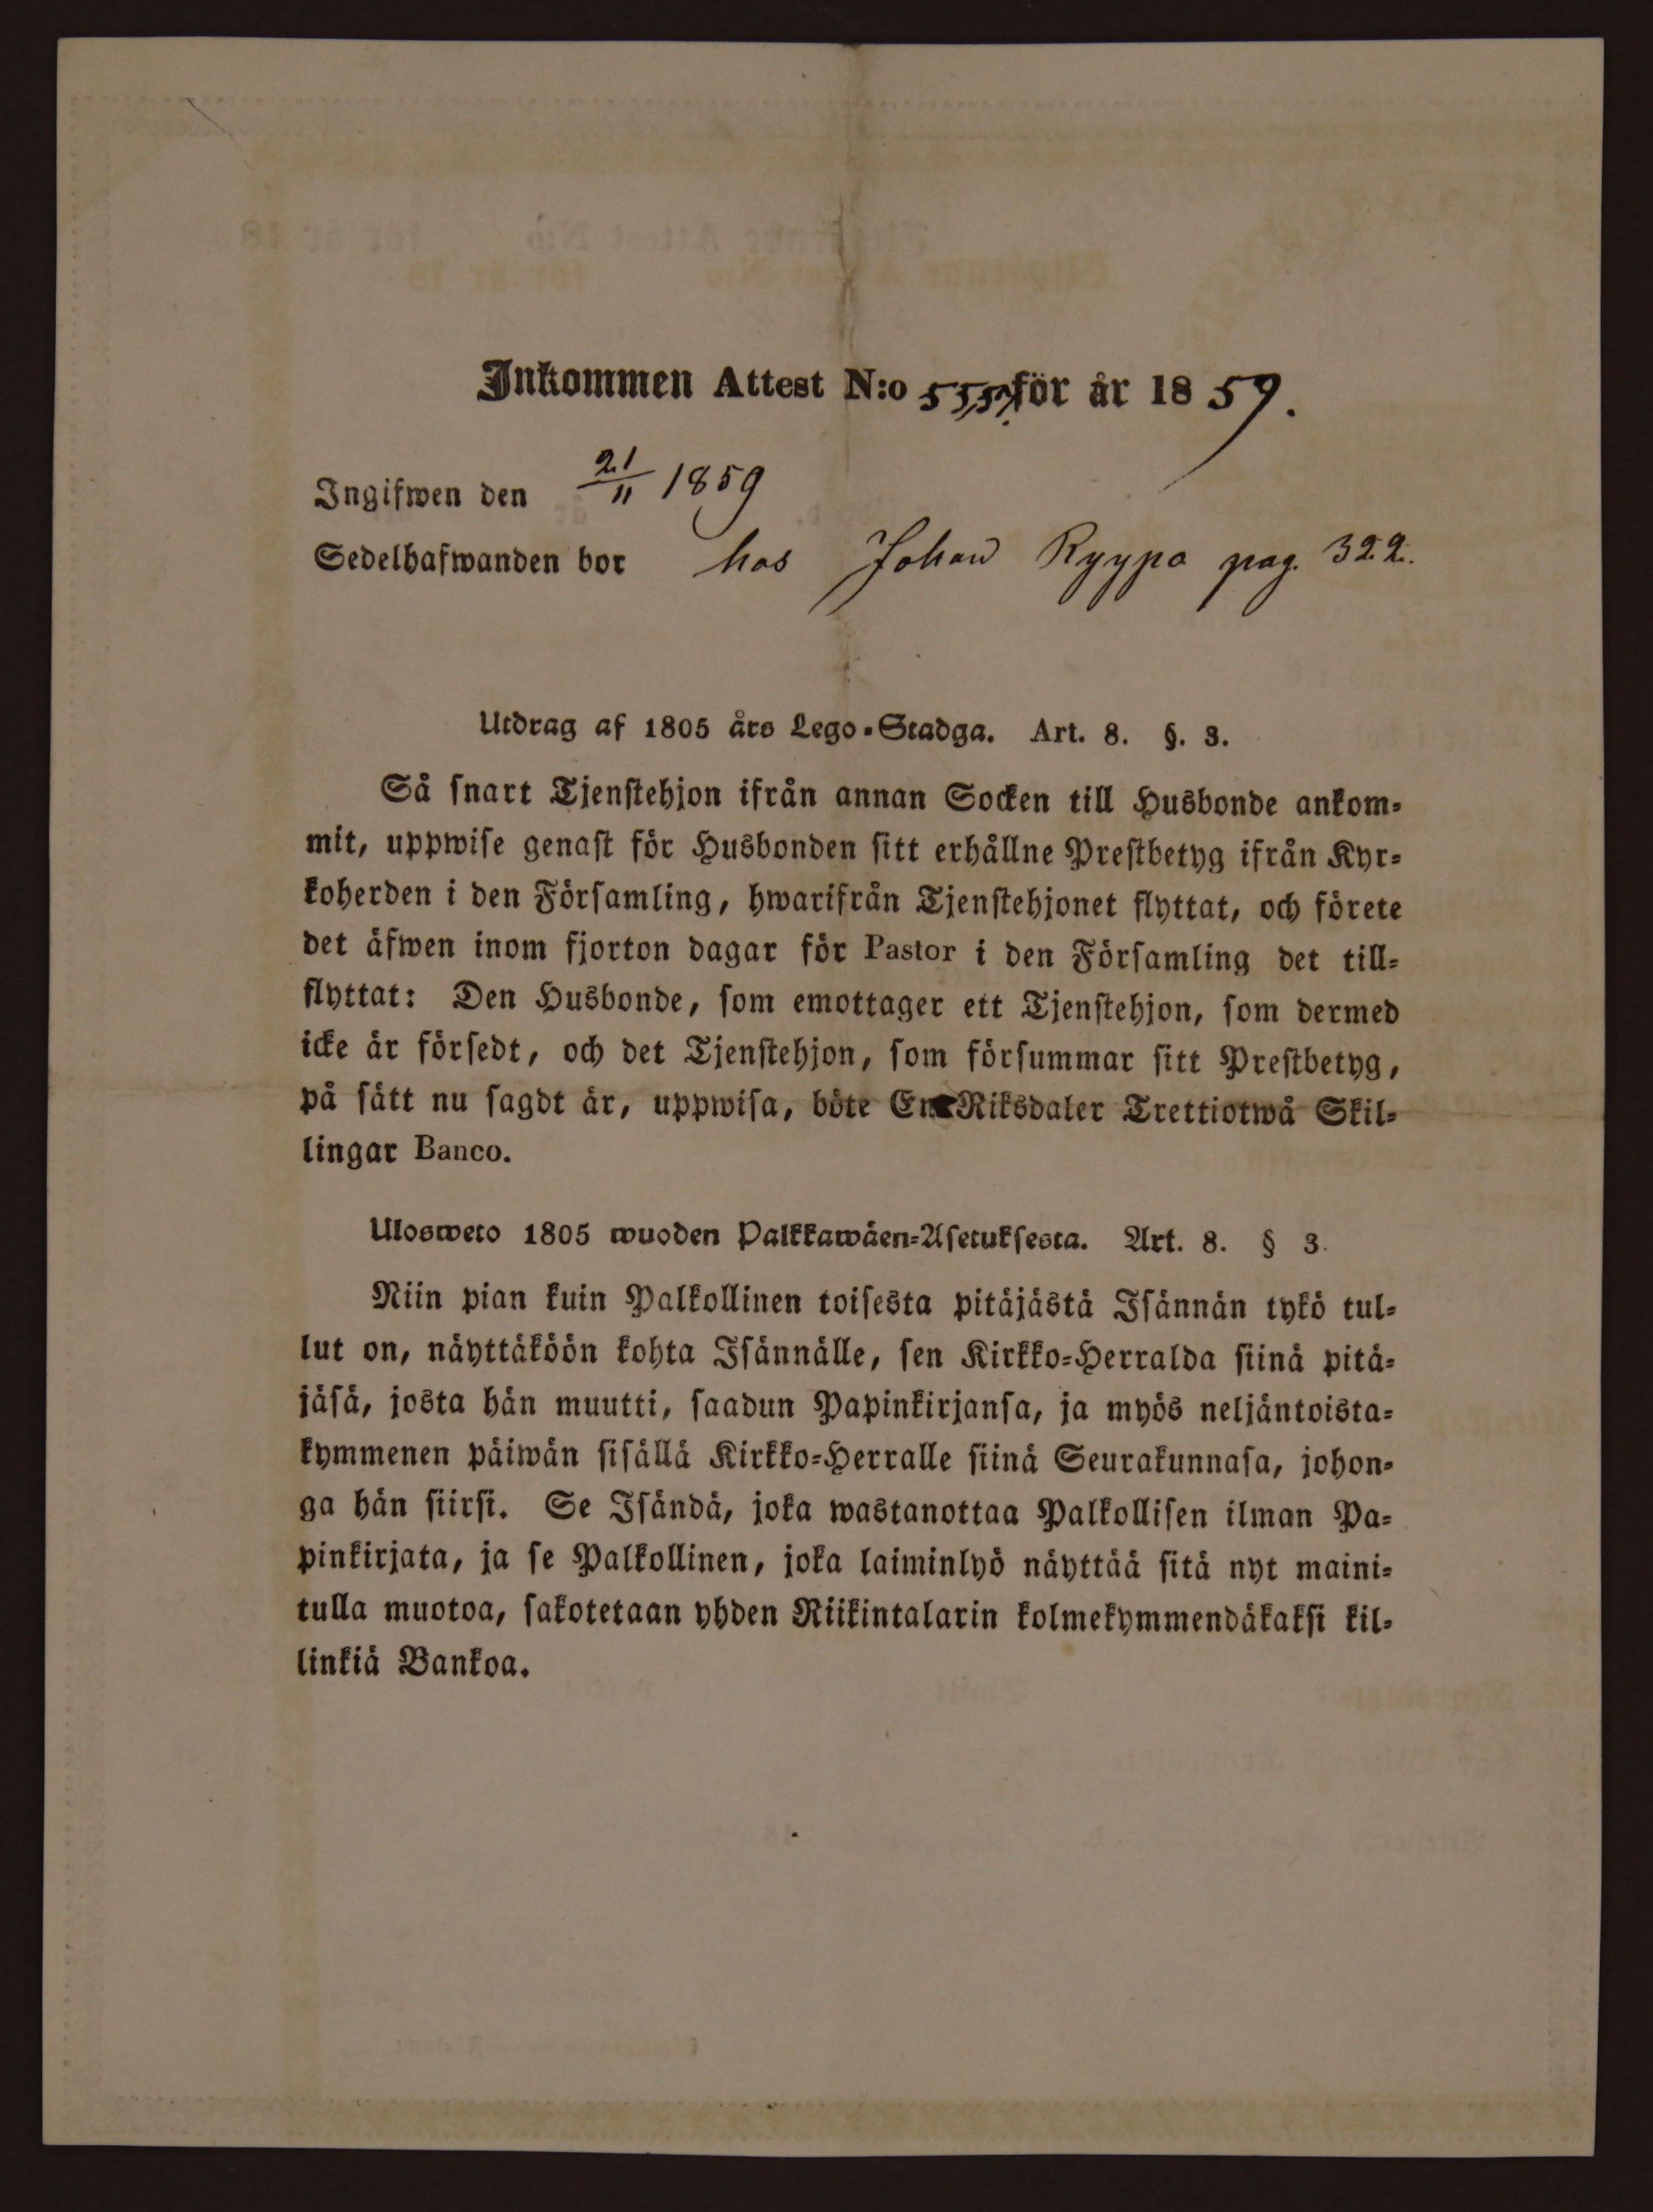 Inkommen Attest N:o 555, för år 1859.
Ingifwen den 21/11 1859
Sedelhafwanden bor hos Johan Ryypa pag. 322.
Utdrag af 1805 års Lego-Stadga. Art. 8. §. 3.
Så snart Tjenstehjon ifrån annan Socken till Husbonde ankom-
mit, uppwise genast för Husbonden sitt erhållne Prestbetyg ifrån Kyr-
koherden i den Församling, hwarifrån Tjenstehjonet flyttat, och förete
det äfwen inom fjorton dagar för Pastor i den Församling det till-
flyttat: Den Husbonde, som emottager ett Tjenstehjon, som dermed
icke är försedt, och det Tjenstehjon, som försummar sitt Prestbetyg,
på sätt nu sagdt är, uppwisa, böte En Riksdaler Trettiotwå Skil-
lingar Banco.
Ulosweto 1805 wuoden Palkkawäen-Asetuksesta. Art. 8. § 3.
Niin pian kuin Palkollinen toisesta pitäjästä Isännän tykö tul-
lut on, näyttäköön kohta Isännälle, sen Kirkko-Herralda siinä pitä-
jäsä, josta hän muutti, saadun Papinkirjansa, ja myös neljäntoista-
kymmenen päiwän sisällä Kirkko-Herralle siinä Seurakunnasa, johon-
ga hän siirsi. Se Isändä, joka wastanottaa Palkollisen ilman Pa-
pinkirjata, ja se Palkollinen, joka laiminlyö näyttää sitä nyt maini-
tulla muotoa, sakotetaan yhden Riikintalarin kolmekymmendäkaksi kil-
linkiä Bankoa.